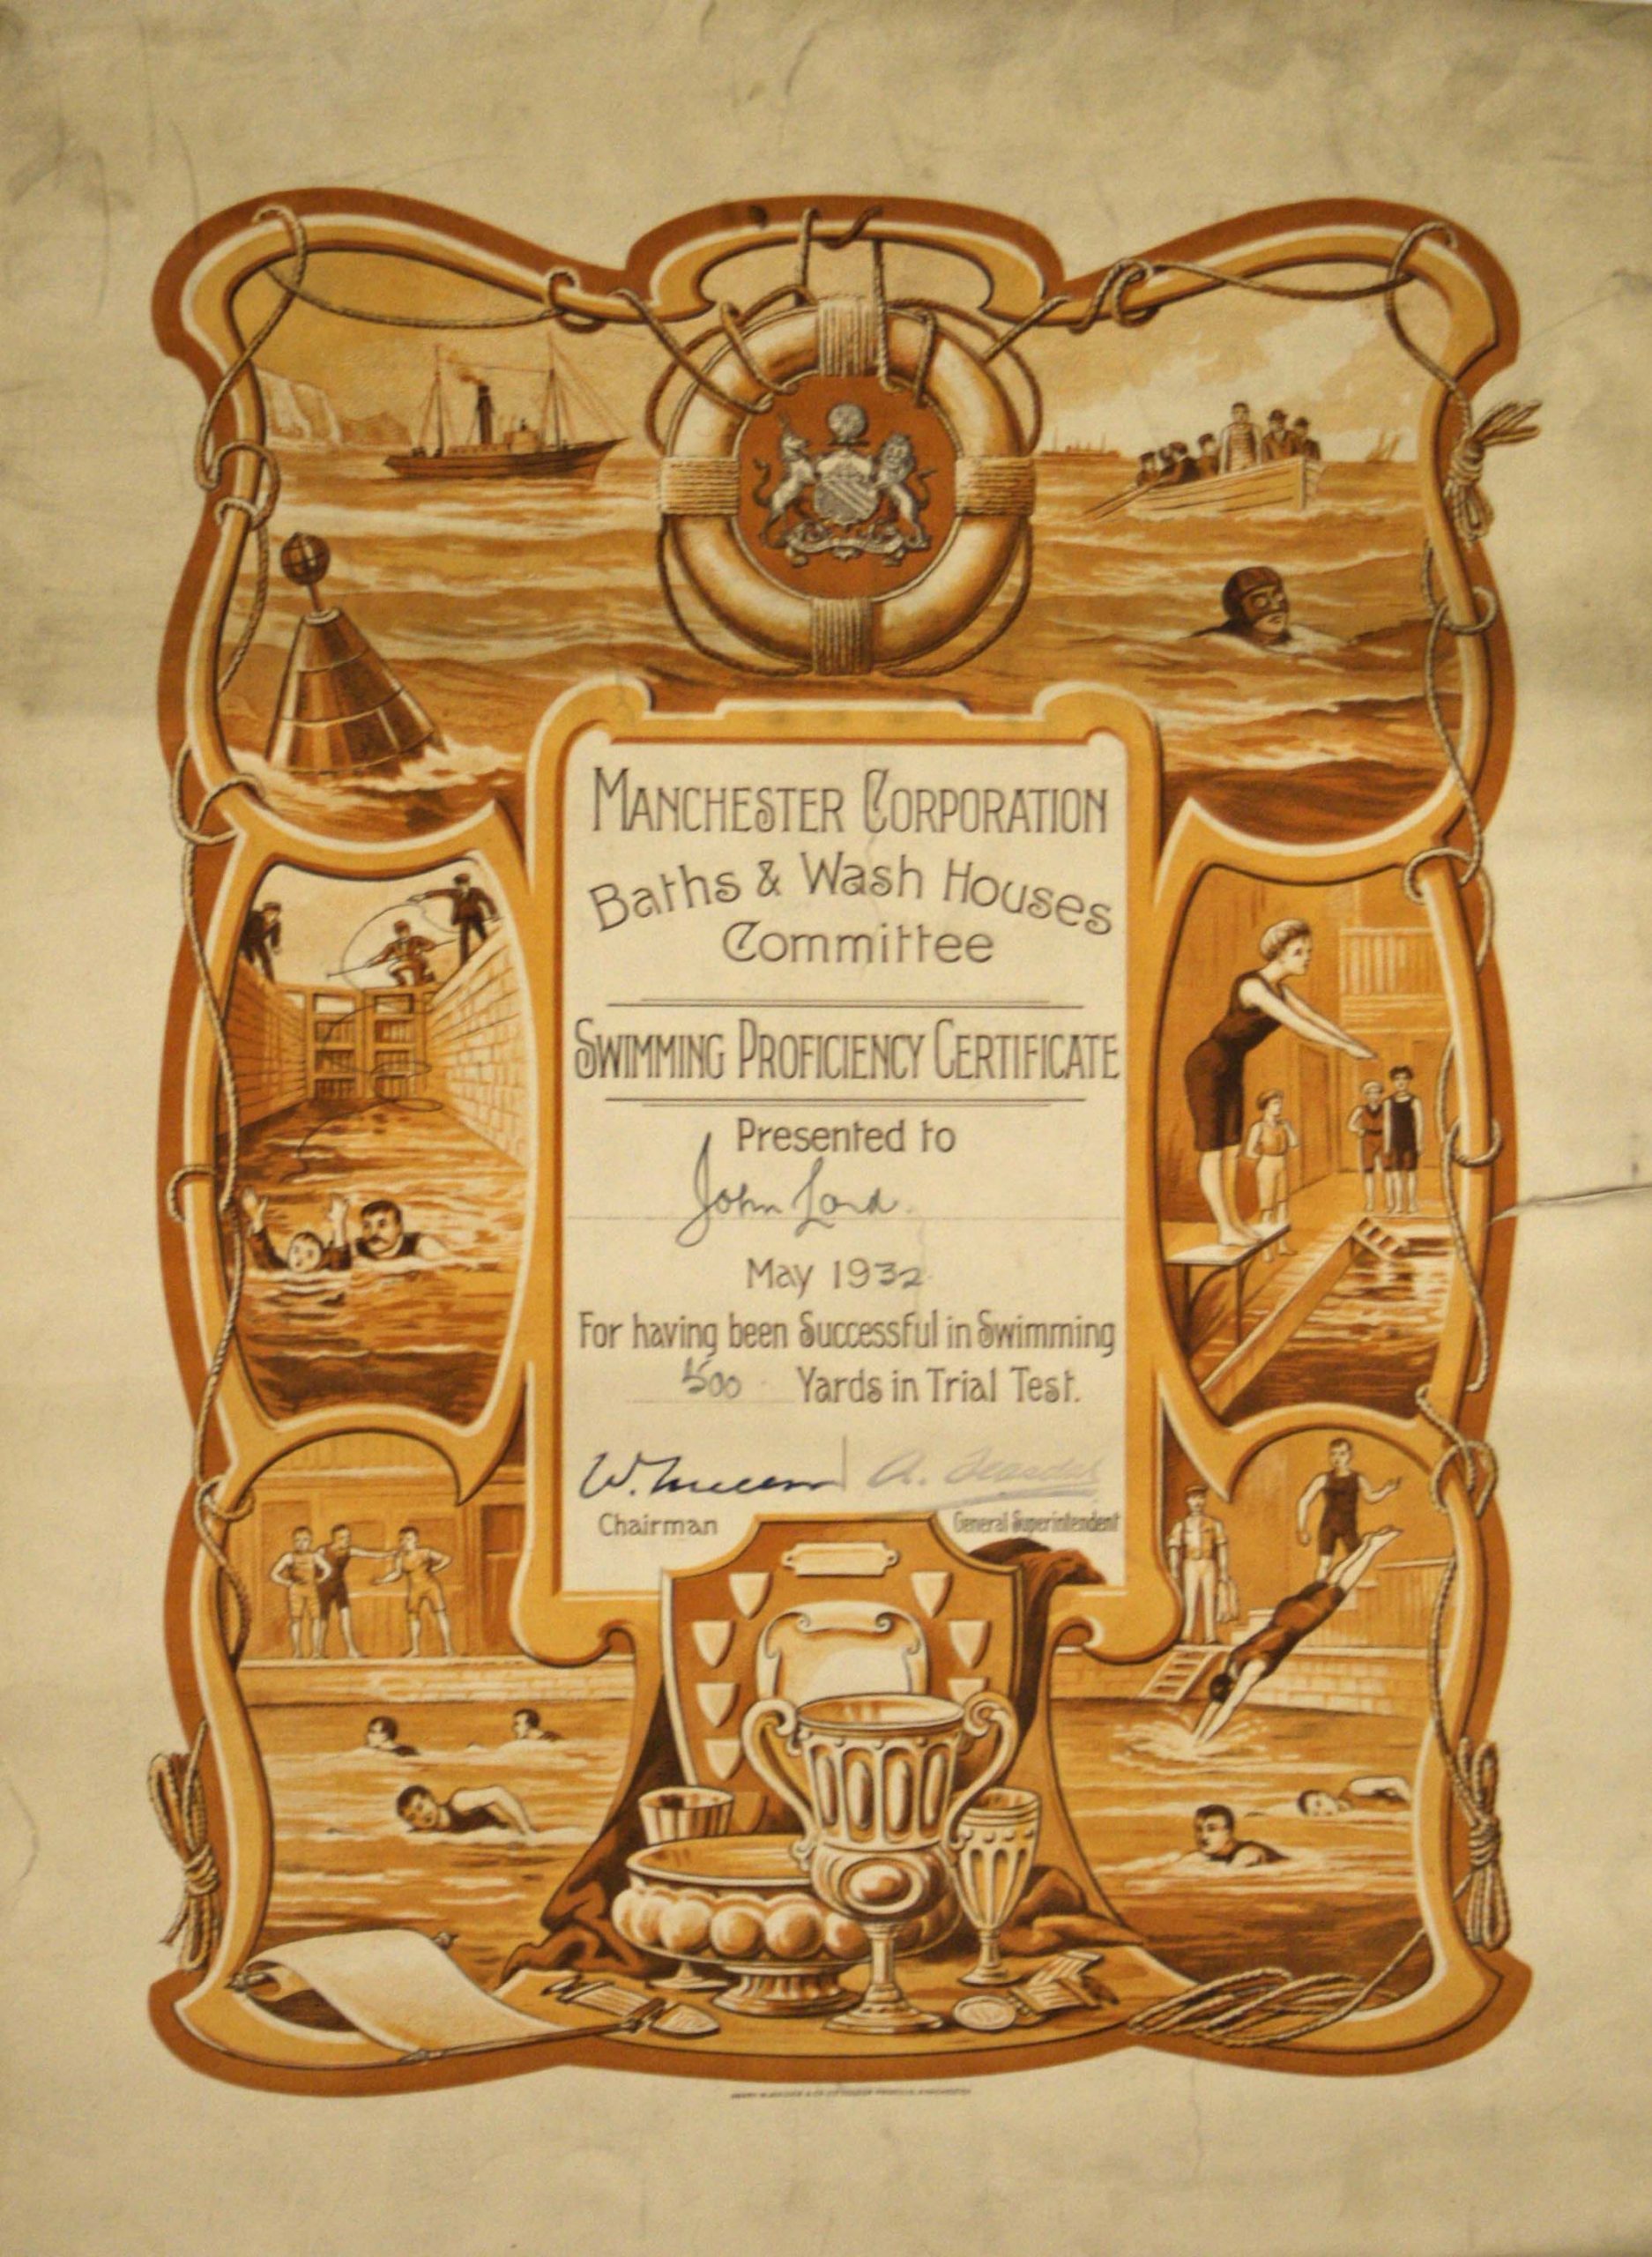 MANCHESTER CORPORATION
Baths & Wash Houses
Committee
SWIMMING PROFICIENCY CERTIFICATE
Presented to
John Lord.
May 1932
For having been Successful in Swimming
500 Yards in Trial Test.
W. A.
Chairman General Superintendent